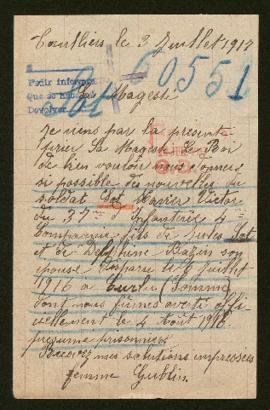 le 3 Juillet 1917
60551
Pedir informes
Devolver
Majesté
Je viens par la présente
prier Sa Majesté Le Roi
de bien vouloir nous donner
si possible des nouvelles du
soldat Victor
du 37me Infanterie 4e
Compagnie fils de Jules
et de Delphine Bazin son
épouse disparu le Juillet
1916 à (Somme)
dont nous fûmes averti offi
ciellement le 4 Août 1916
présumé prisonnier
Recevez mes salutions empressées
femme